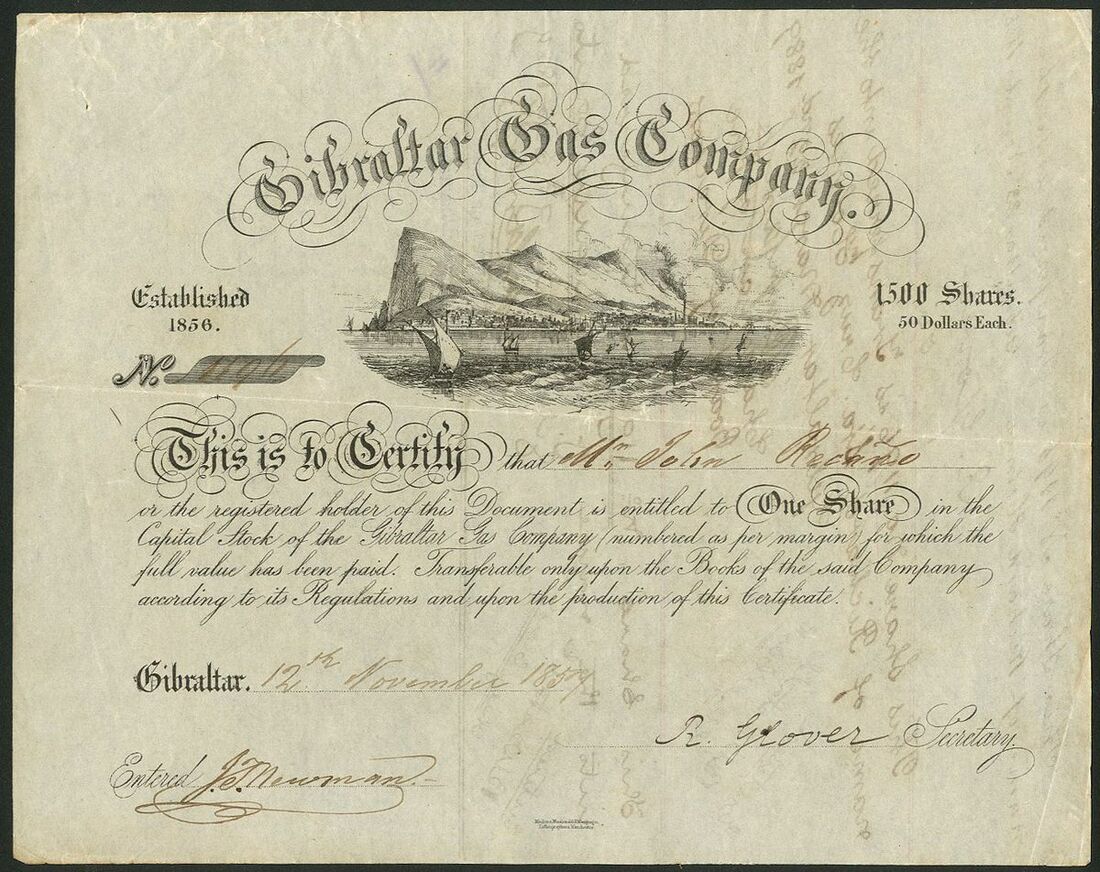 Gibraltar Gas Company.
Established
1856.
1500 Shares.
50 Dollars Each.
No.
This is to Certify that Mr. John Recaño
or the registered holder of this Document is entitled to One Share in the
Capital Stock of the Gibraltar Gas Company (numbered as per margin) for which the
full value has been paid. Transferable only upon the Books of the said Company
according to its Regulations and upon the production of this Certificate.
Gibraltar. 12th November 1857
R. Glover Secretary.
Entered J. T. Newman